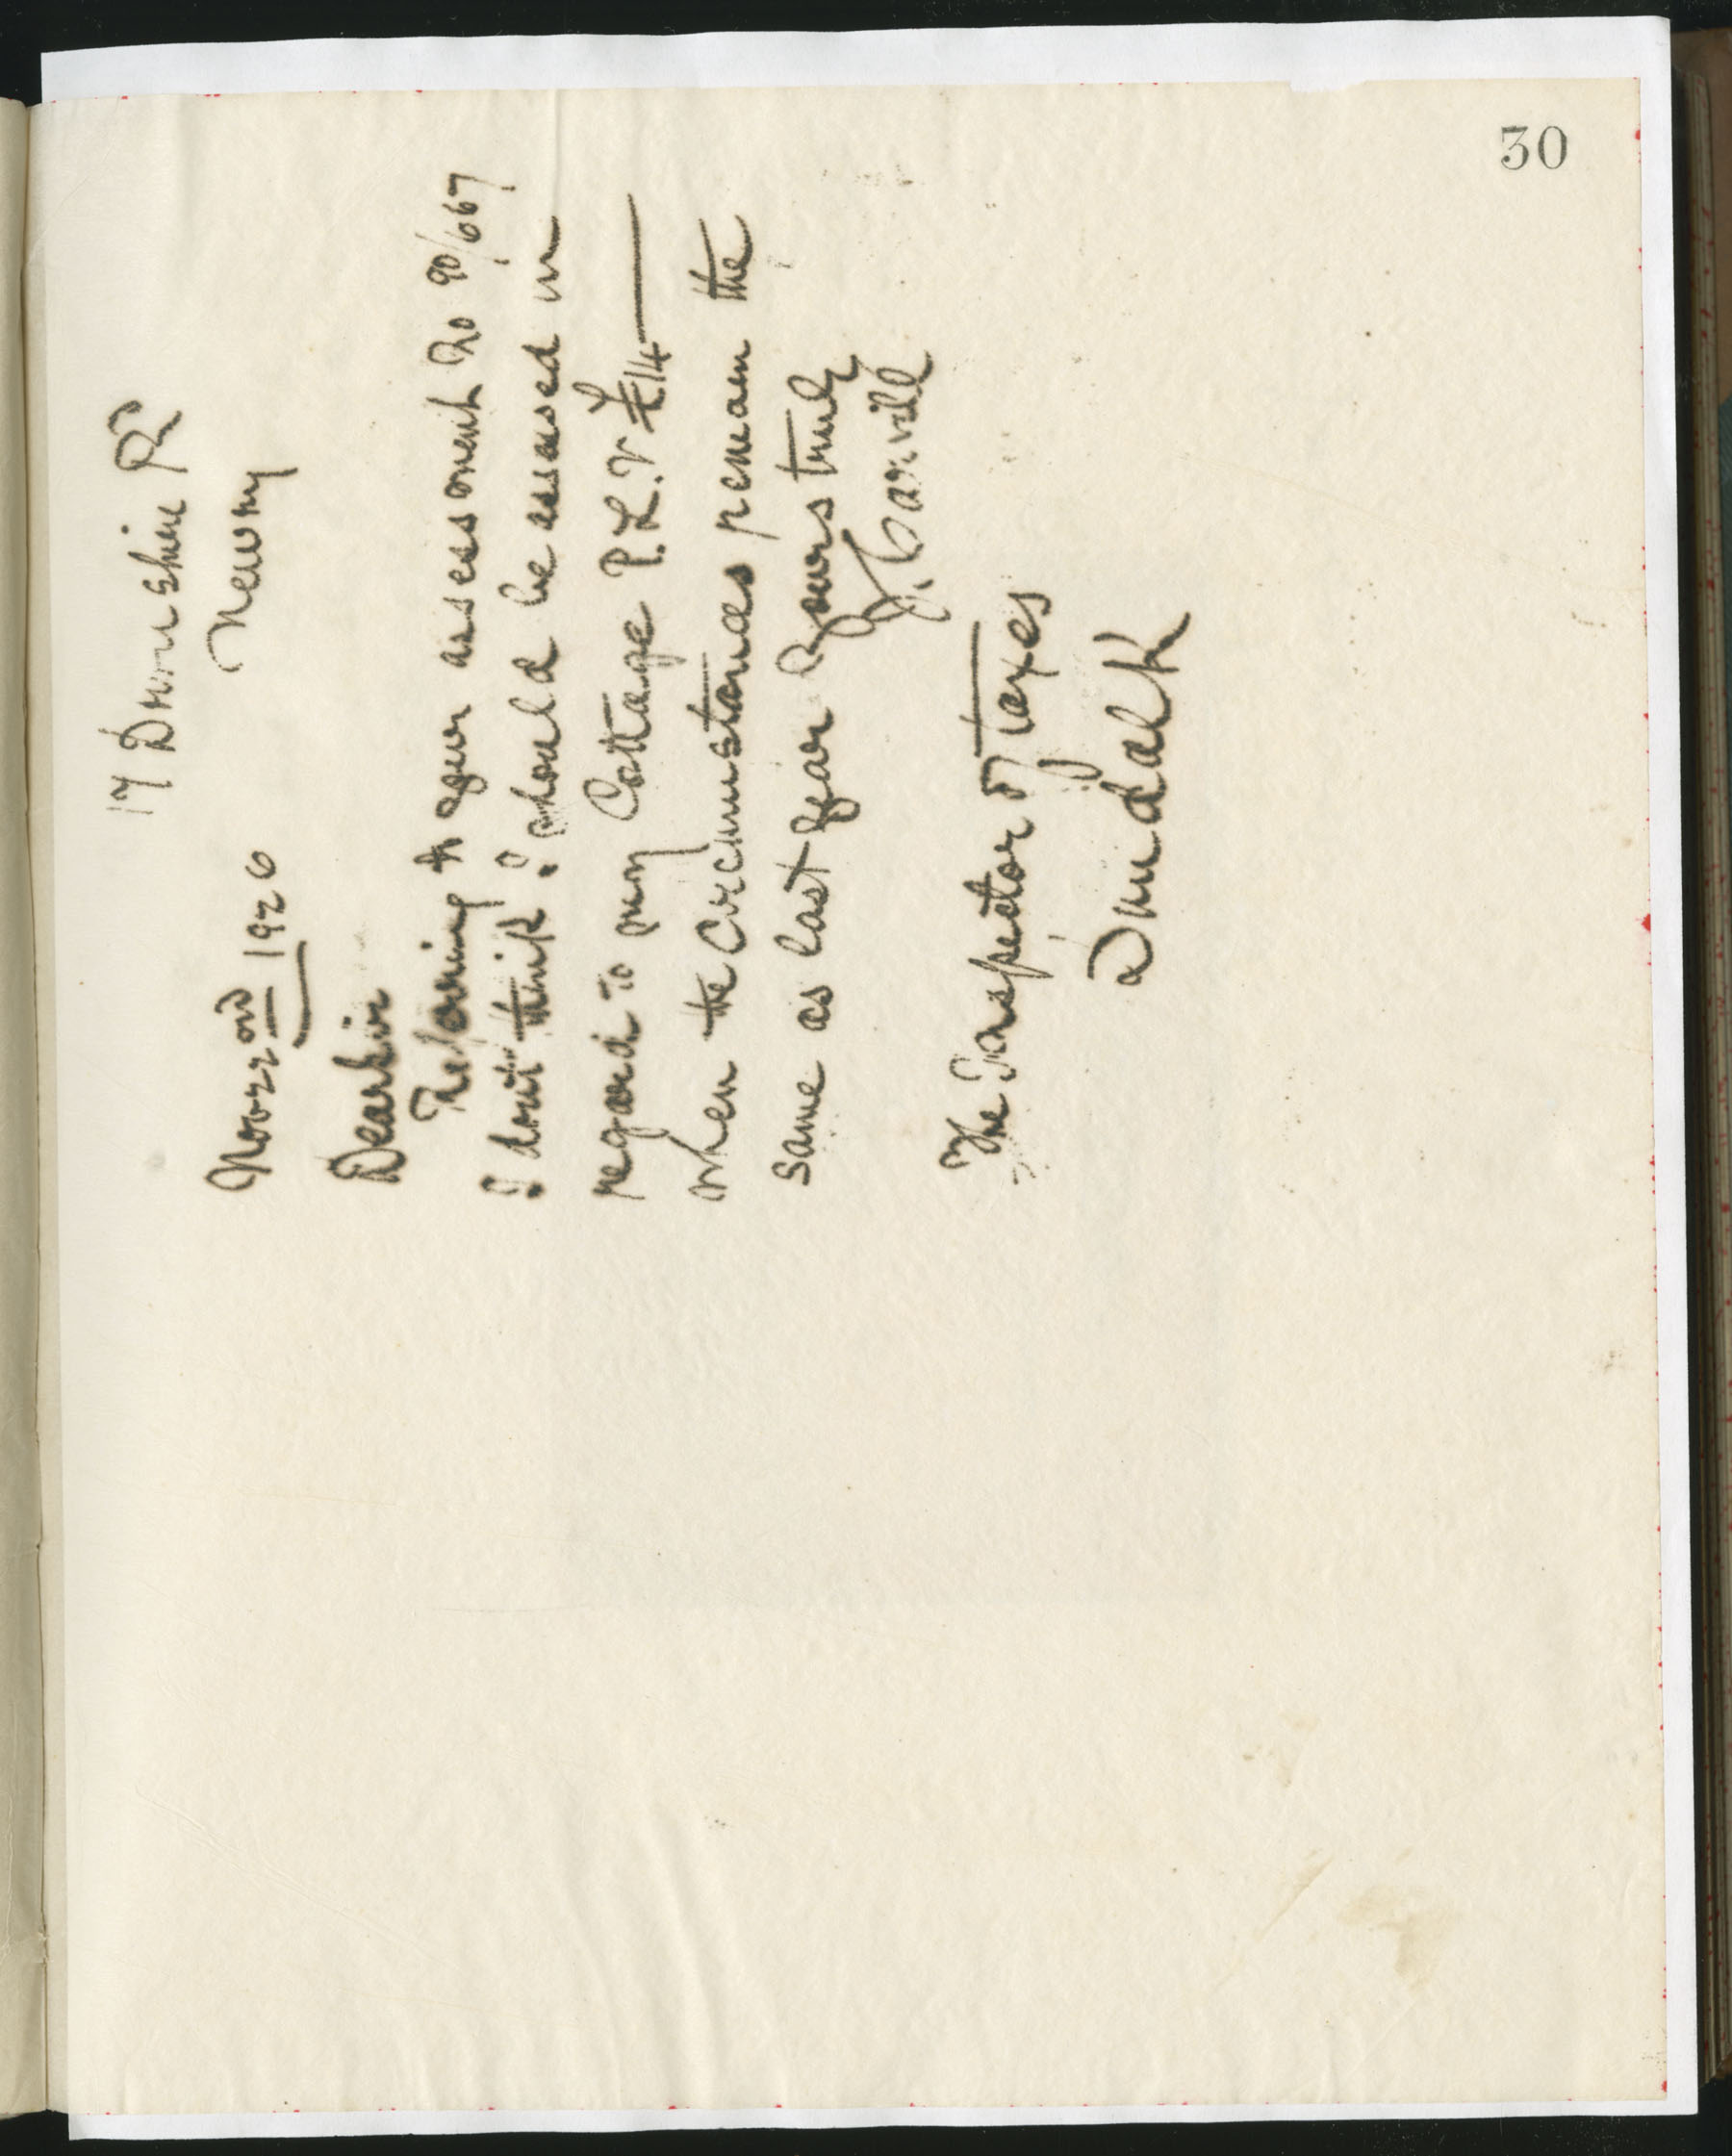 30
17 Downshire Rd
Newry
Nov 22nd 1926
Dear Sir
Referring to your assessment No 90/667
I dont think I should be assessed in
regard to my Cottage P.L.V £14
when the circumstances remain the
same as last year Yours truly
J. Carvill
The Inspector of Taxes
Dundalk